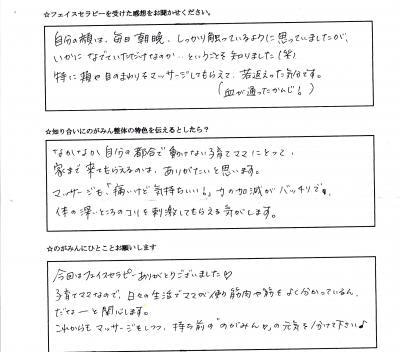 ☆フェイスセラピーを受けた感想をお聞かせください。
自分の顔は、毎日朝晩、しっかり触っているように思っていましたが、
いかになでていただけなのか…ということを知りました(笑)
特に頬や目のまわりをマッサージしてもらえて、若返えった気分です。
(血が通ったかんじ!)
☆知り合いにのがみん整体の特色を伝えるとしたら?
なかなか自分の都合で動けない子育てママにとって、
家まで来てもらえるのは、ありがたいと思います。
マッサージも、「痛いけど気持ちいい!」力の加減がバッチリです。
体の深いところのコリを刺激してもらえる気がします。
☆のがみんにひとことお願いします
今回はフェイスセラピーありがとうございました♡
子育てママなので、日々の生活でママが働く筋肉や筋をよく分かっているん
だなーと関心します。
これからもマッサージをしつつ、持ち前の"のがみん♡"の元気を分けて下さい♪